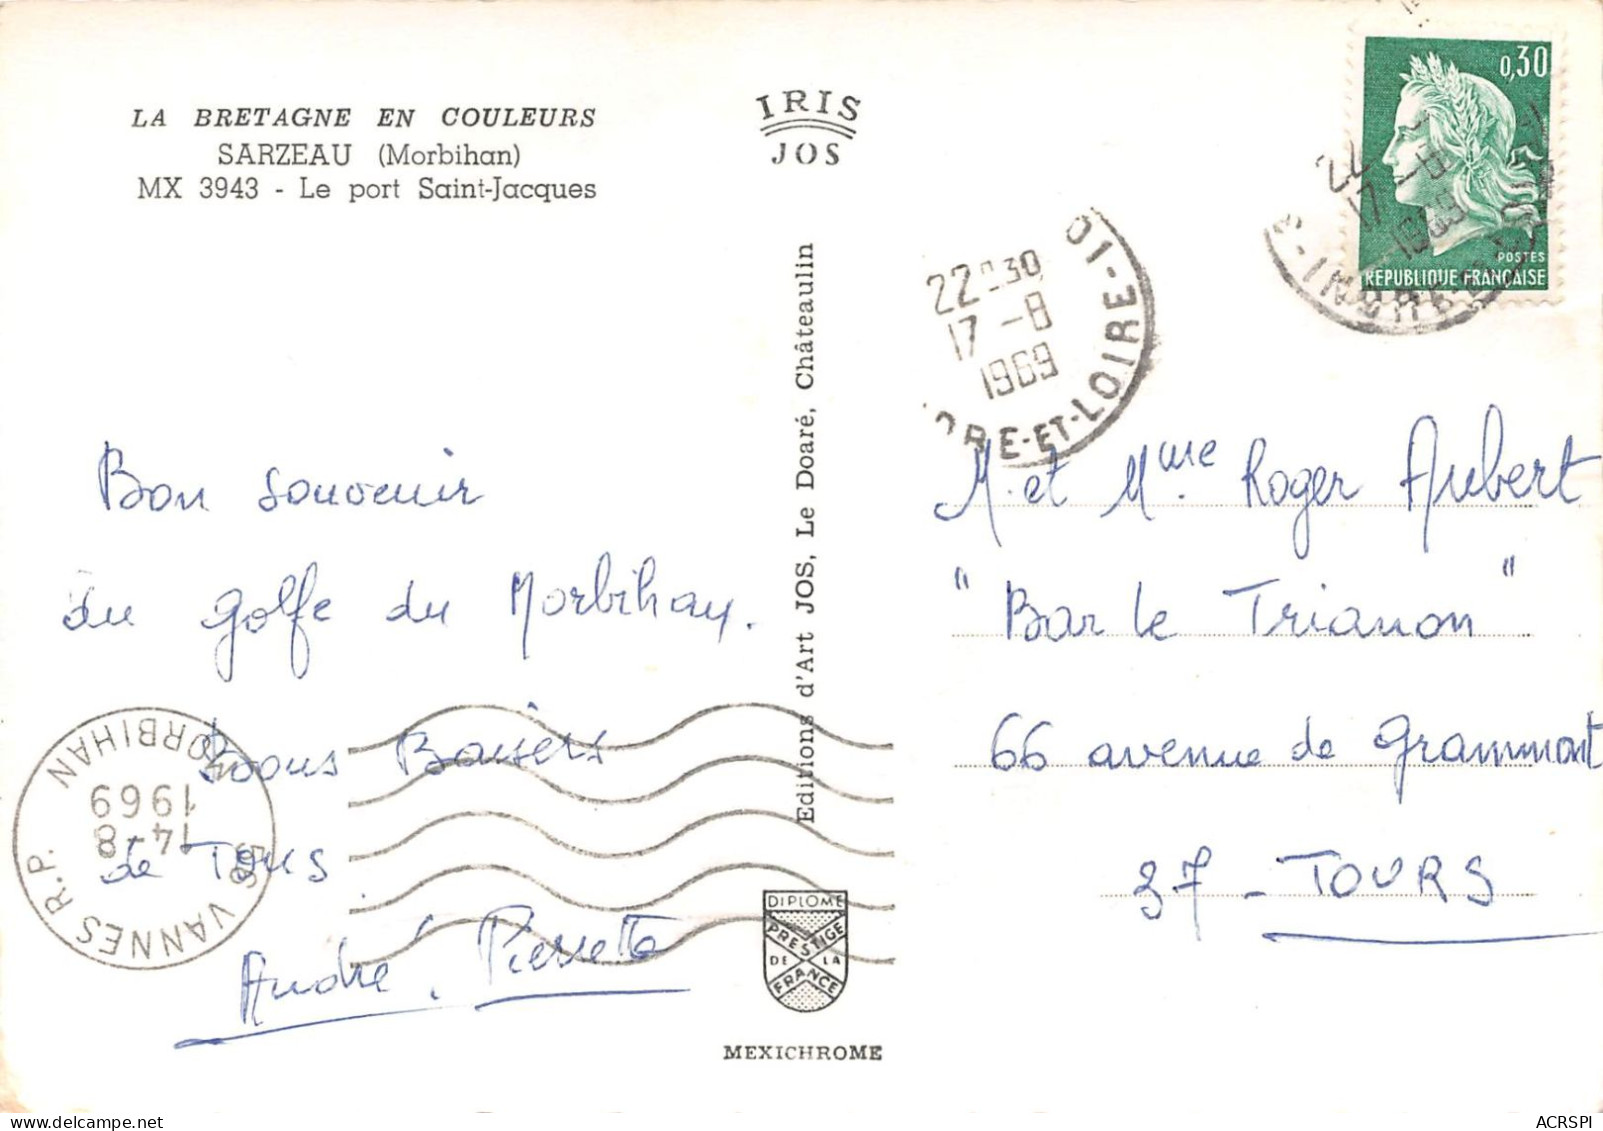 LA BRETAGNE EN COULEURS
SARZEAU (Morbihan)
MX 3943 - Le port Saint-Jacques
IRIS
JOS
0,30
POSTES
REPUBLIQUE FRANÇAISE
22 30
17 -8
1969
RE-ET-LOIRE-
22
17 -8
1969
Editions d'Art JOS, Le Doaré, Châteaulin
Bon souvenir
du golfe du Morbihan.
Bons Baisers
de Tous.
André, Pierrette
M. et Mme Roger Aubert
"Bar le Trianon"
66 avenue de Grammont
37 - TOURS
VANNES R.P.
MORBIHAN
14-8
1969
DIPLOME
PRESTIGE
DE LA
FRANCE
MEXICHROME
ACRSPI